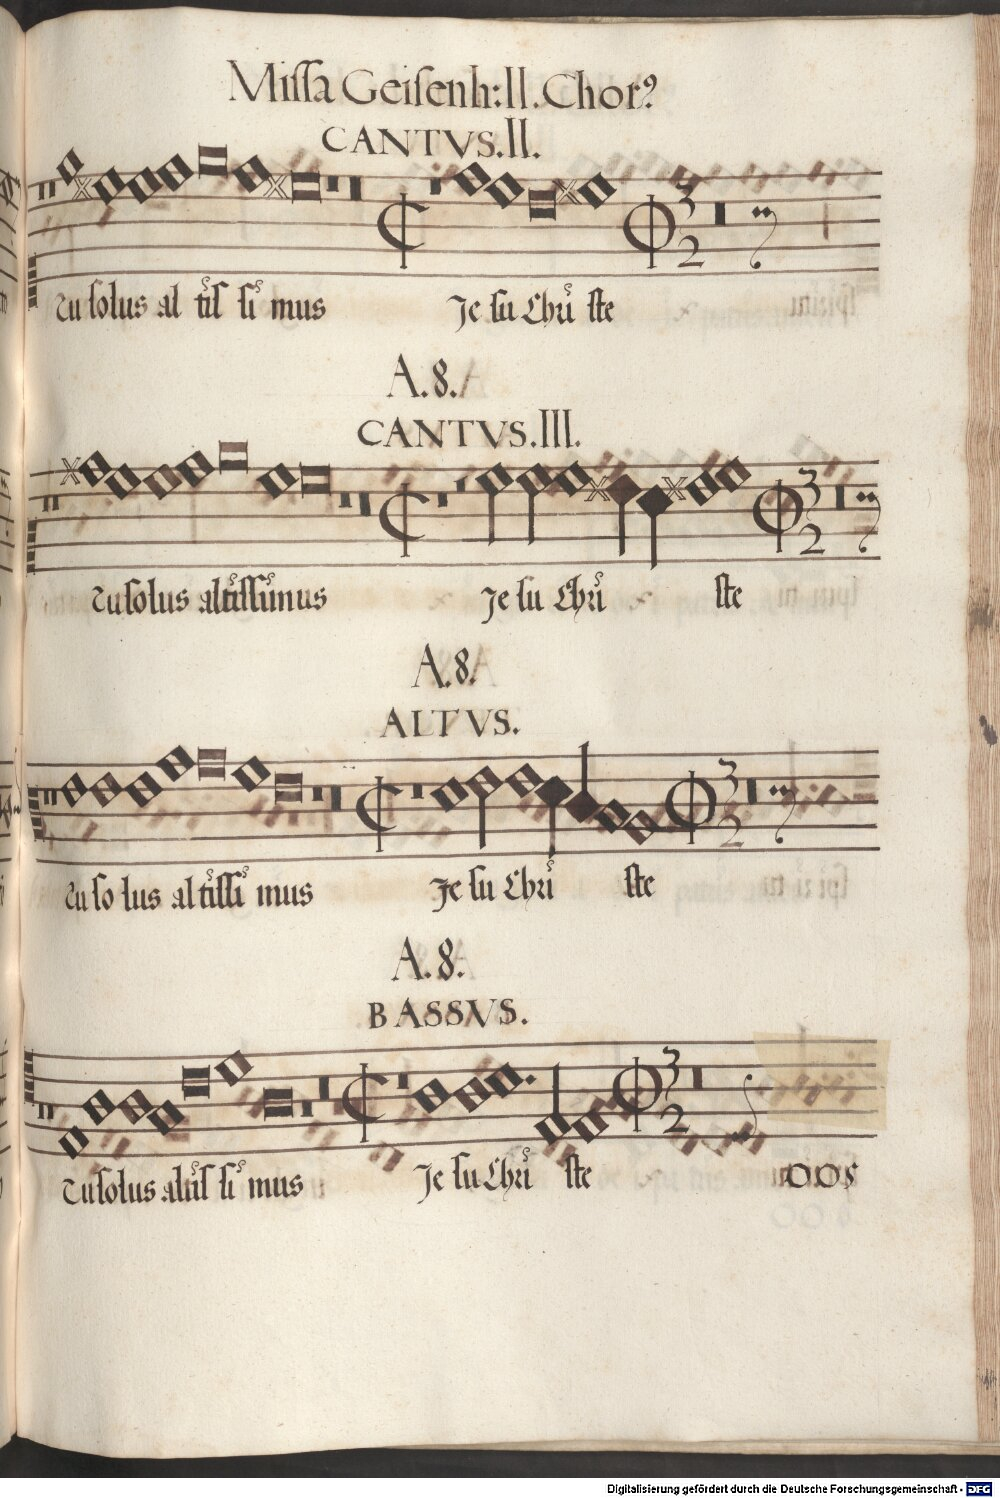 Missa Geisenh: II. Chor9
CANTVS. II.
Tu solus al tis si mus Je su Chri ste
A. 8.
CANTVS. III.
Tu solus altissimus Je su Chri ste
A. 8.
ALTVS.
Tu so lus al tissi mus Je su Chri ste
A. 8.
BASSVS.
Tu solus altis si mus Je su Chri ste OOS
Digitalisierung gefördert durch die Deutsche Forschungsgemeinschaft - DFG